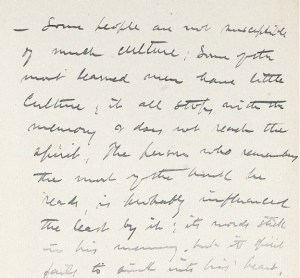 — Some people are not susceptible
of much culture; Some of the
most learned men have little
Culture; it all stops with the
memory & does not reach the
spirit. The person who remembers
the most of the books he
reads, is probably influenced
the least by it; its words stick
in his memory, but its spirit
fails to sink into his heart.